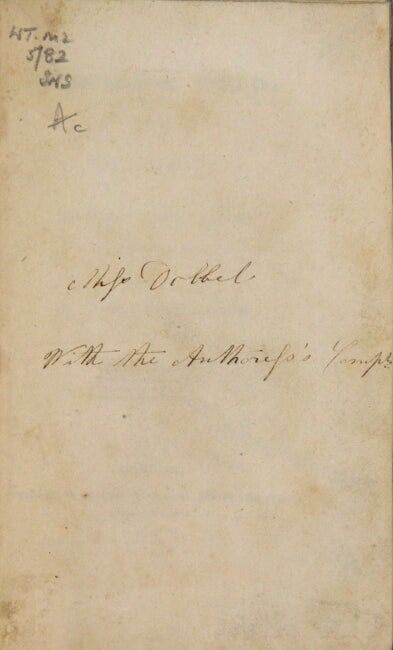 WT. M2
5/82
SHS
Ac
Miſs Dobbel
With the Authoreſs's Compts